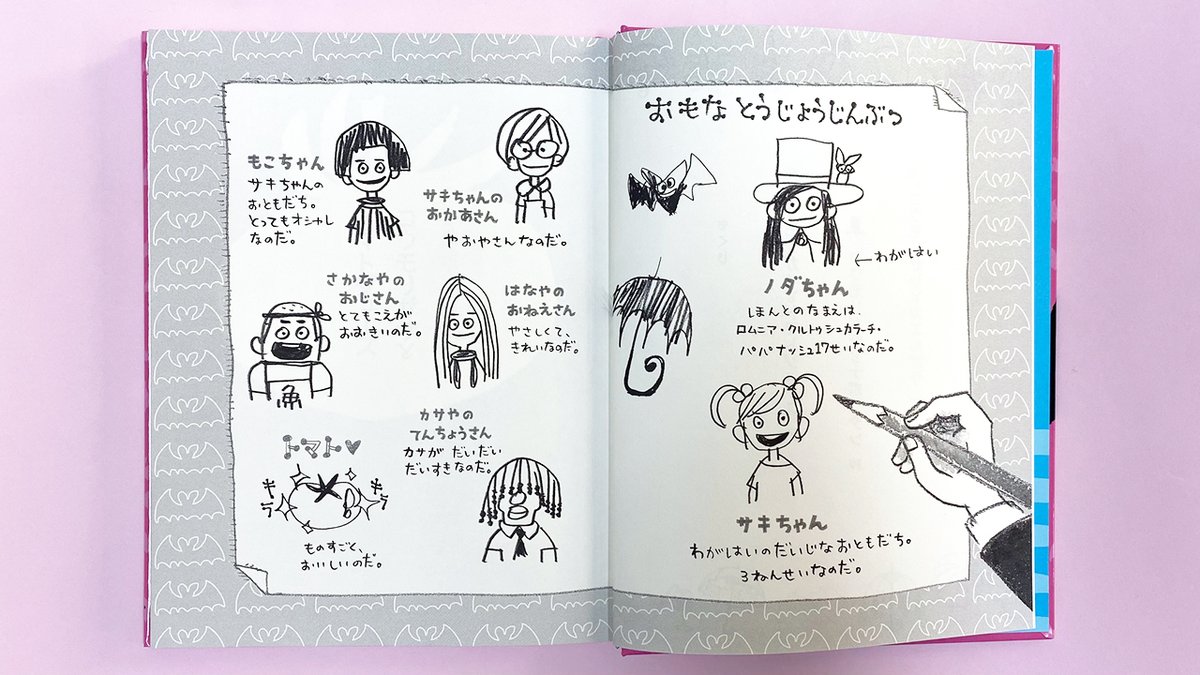 おもな とうじょうじんぶつ
←わがはい
ノダちゃん
ほんとのなまえは、
ロムニア・クルトゥシュカラーチ・
パパナッシュ17せいなのだ。
サキちゃん
わがはいのだいじなおともだち。
3ねんせいなのだ。
もこちゃん
サキちゃんの
おともだち。
とってもオシャレ
なのだ。
サキちゃんの
おかあさん
やおやさんなのだ。
さかなやの
おじさん
とてもこえが
おおきいのだ。
魚
はなやの
おねえさん
やさしくて、
きれいなのだ。
カサやの
てんちょうさん
カサが だいだい
だいすきなのだ。
トマト♥
キラ
キラ
ものすごと、
おいしいのだ。